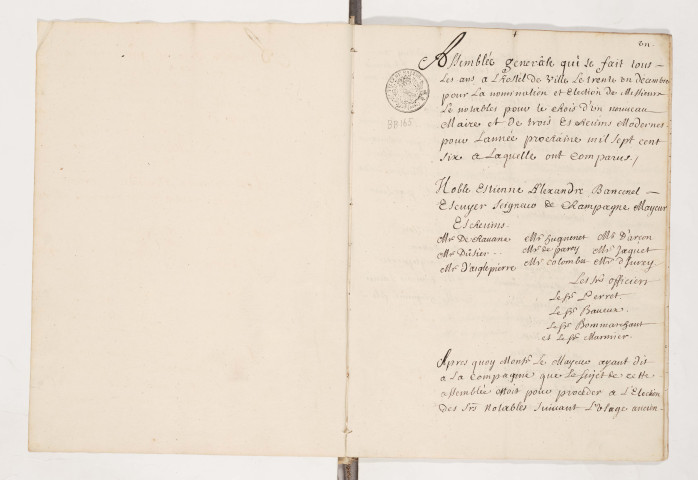 en
Assemblée generale qui se fait tous
Les ans a L'hostel de Ville Le trente un decembre
pour La nomination et Election de Messieurs
Le notables pour le choix d'un nouveau
Maire et de trois Eschevins Modernes
pour L'année prochaine mil sept cent
six a Laquelle ont Comparus /
BB 165
Noble Estienne Alexandre Bancenel
Escuyer Seigneur de Champagne Mayeur
Eschevins
Mr De Chavane Mr huguenet Mr D'arcon
Mr Dusier Mr de parey Mr Jaquet
Mr D'aiglepierre Mr Colombet Mr D'Jvrey
Les Srs officiers
Le Sr Perret
Le Sr Baveux
Le Sr Bommarchant
et Le Sr Marmier
Apres quoy Monsr Le Mayeur ayant dit
a La Compagnie que Le sujet de cette
assemblée estoit pour proceder a L'Election
Des Srs notables suivant L'usage ancien